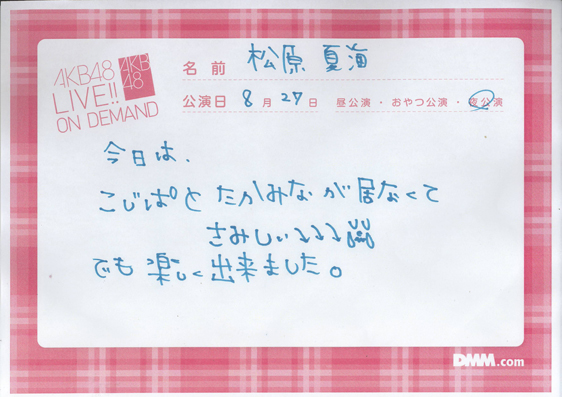 AKB48
LIVE!!
ON DEMAND
AKB
48
名前 松原 夏海
公演日 8月27日 昼公演・おやつ公演・夜公演
今日は、
こじぱと たかみなが居なくて
さみしぃ↓↓↓
でも楽しく出来ました。
DMM.com